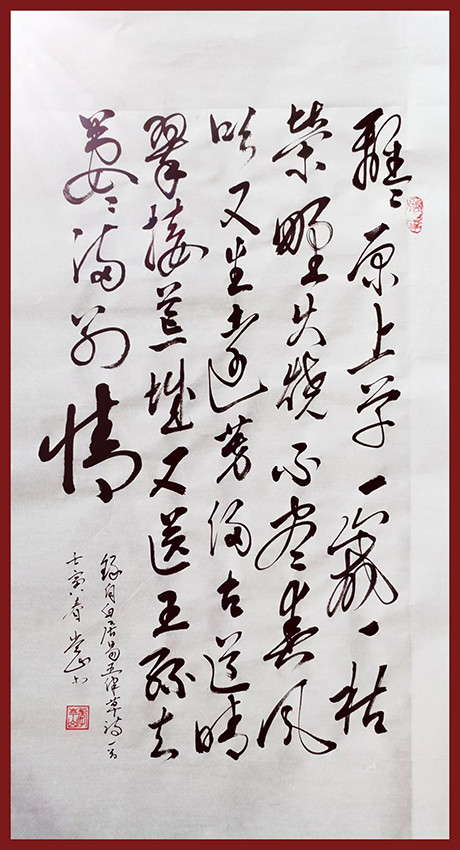 離〻原上草一歲一枯
榮野火燒不盡春風
吹又生遠芳侵古道晴
翠接荒城又送王孫去
萋〻滿別情
錄自白居易五律草詩一首
壬寅春